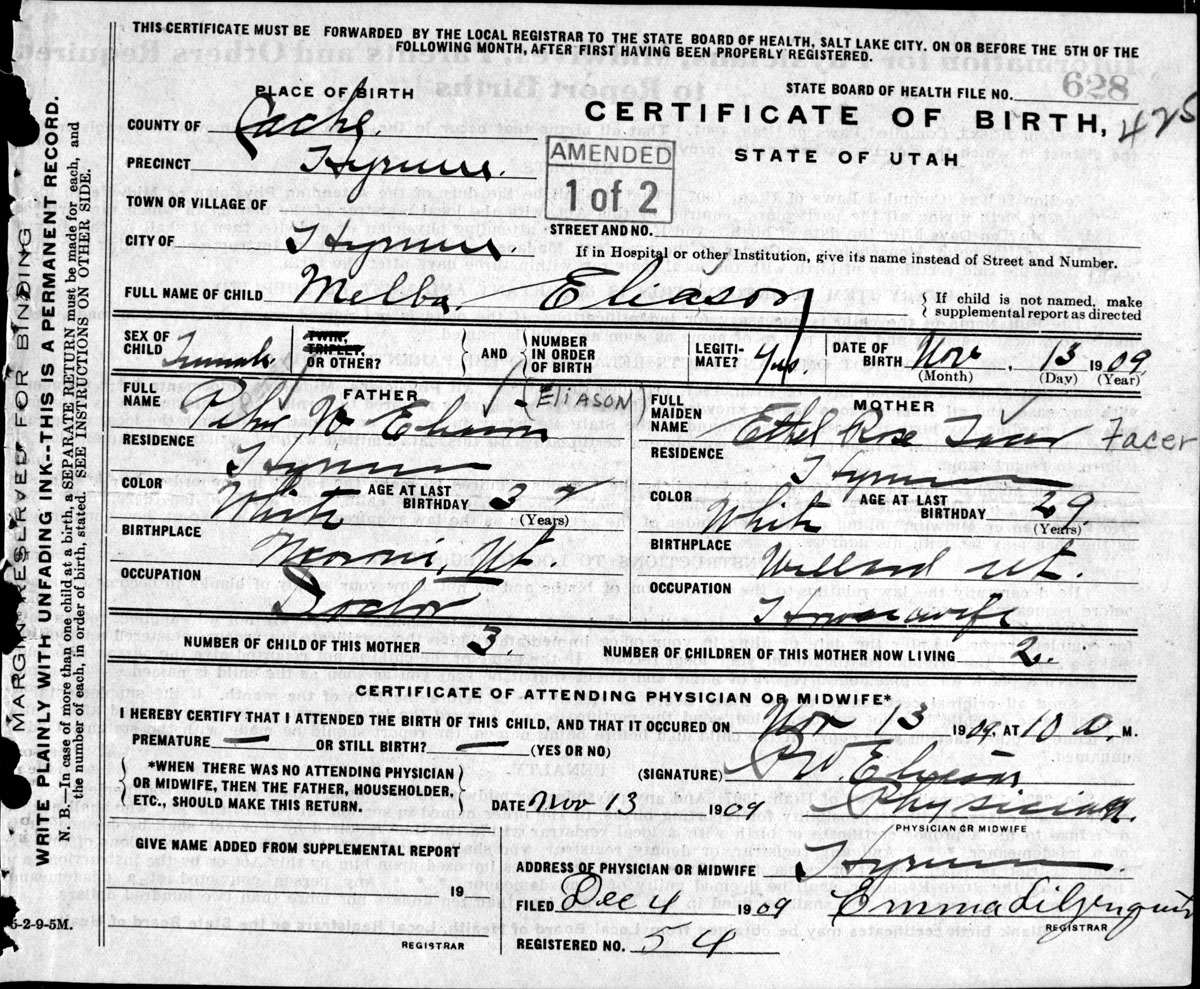 THIS CERTIFICATE MUST BE FORWARDED BY THE LOCAL REGISTRAR TO THE STATE BOARD OF HEALTH, SALT LAKE CITY. ON OR BEFORE THE 5TH OF THE
FOLLOWING MONTH, AFTER FIRST HAVING BEEN PROPERLY REGISTERED.
PLACE OF BIRTH
STATE BOARD OF HEALTH FILE NO. 628
COUNTY OF Cache.
CERTIFICATE OF BIRTH, 425
PRECINCT Hyrum.
AMENDED
1 of 2
STATE OF UTAH
TOWN OR VILLAGE OF
STREET AND NO.
CITY OF Hyrum
If in Hospital or other Institution, give its name instead of Street and Number.
FULL NAME OF CHILD Melba Eliason
If child is not named, make
supplemental report as directed
SEX OF CHILD Female
TWIN, TRIPLET, OR OTHER?
AND
NUMBER IN ORDER OF BIRTH
LEGITI-MATE? Yes
DATE OF BIRTH Nov. 13 1909
(Month) (Day) (Year)
FATHER
FULL NAME W Eliason (ELIASON)
RESIDENCE Hyrum
COLOR White
AGE AT LAST BIRTHDAY 32
(Years)
BIRTHPLACE Moroni, Ut
OCCUPATION Doctor
MOTHER
FULL MAIDEN NAME Ethel Rose Facer Facer
RESIDENCE Hyrum
COLOR White
AGE AT LAST BIRTHDAY 29
(Years)
BIRTHPLACE Willard Ut.
OCCUPATION Housewife
NUMBER OF CHILD OF THIS MOTHER 3.
NUMBER OF CHILDREN OF THIS MOTHER NOW LIVING 2.
CERTIFICATE OF ATTENDING PHYSICIAN OR MIDWIFE*
I HEREBY CERTIFY THAT I ATTENDED THE BIRTH OF THIS CHILD, AND THAT IT OCCURED ON Nov 13 1909, AT 10 a. M.
PREMATURE — OR STILL BIRTH? — (YES OR NO)
*WHEN THERE WAS NO ATTENDING PHYSICIAN
OR MIDWIFE, THEN THE FATHER, HOUSEHOLDER,
ETC., SHOULD MAKE THIS RETURN.
(SIGNATURE) W. Eliason
DATE Nov 13 1909 Physician.
PHYSICIAN OR MIDWIFE
GIVE NAME ADDED FROM SUPPLEMENTAL REPORT
19
REGISTRAR
ADDRESS OF PHYSICIAN OR MIDWIFE Hyrum
FILED Dec 4 1909 Emma Liljenquist
REGISTRAR
REGISTERED NO. 54
5-2-9-5M.
MARGIN RESERVED FOR BINDING
WRITE PLAINLY WITH UNFADING INK--THIS IS A PERMANENT RECORD.
N. B.—In case of more than one child at a birth, a SEPARATE RETURN must be made for each, and
the number of each, in order of birth, stated. SEE INSTRUCTIONS ON OTHER SIDE.